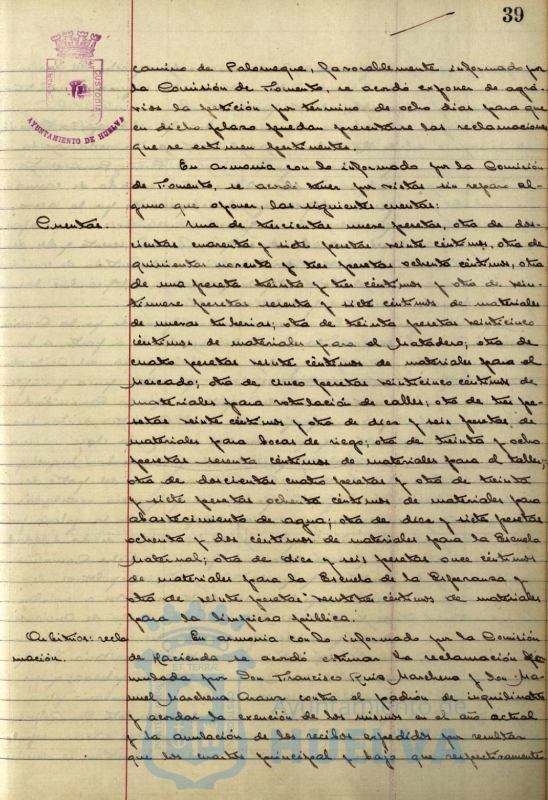 39
AYUNTAMIENTO DE HUELVA
camino de Palomeque, favorablemente informado por
la Comisión de Fomento, se acordó exponer de agra-
vios la petición por término de ocho días para que
en dicho plazo puedan presentarse las reclamaciones
que se estimen pertinentes.
En armonía con lo informado por la Comisión
de Fomento, se acordó tener por vistas sin reparo al-
guno que oponer, las siguientes cuentas:
Cuentas. Una de trescientas nueve pesetas, otra de dos-
cientas cuarenta y siete pesetas veinte céntimos, otra de
quinientas noventa y tres pesetas ochenta céntimos, otra
de una peseta treinta y tres céntimos y otra de vein-
tinueve pesetas sesenta y siete céntimos de materiales
de nuevas tuberías; otra de treinta pesetas veinticinco
céntimos de materiales para el Matadero; otra de
cuatro pesetas veinte céntimos de materiales para el
Mercado; otra de cinco pesetas veinticinco céntimos de
materiales para rotulación de calles; otra de tres pe-
setas veinte céntimos y otra de diez y seis pesetas, de
materiales para bocas de riego; otra de treinta y ocho
pesetas sesenta céntimos de materiales para el taller;
otra de doscientas cuatro pesetas y otra de treinta
y siete pesetas ochenta céntimos de materiales para
abastecimiento de agua; otra de diez y siete pesetas
ochenta y dos céntimos de materiales para la Escuela
Maternal; otra de diez y seis pesetas once céntimos
de materiales para la Escuela de la Esperanza y
otra de veinte pesetas céntimos de materiales
para la limpieza pública.
Arbitrios: recla En armonía con lo informado por la Comisión
mación. de Hacienda se acordó estimar la reclamación for-
mulada por Don Francisco Ruiz Marchena y Don Ma-
nuel Marchena contra el padrón de inquilinatos
y acordar la exención de los mismos en el año actual
y la anulación de los recibos expedidos por resultar
que los cuartos principal y bajo que respectivamente
Ayuntamiento de
HUELVA